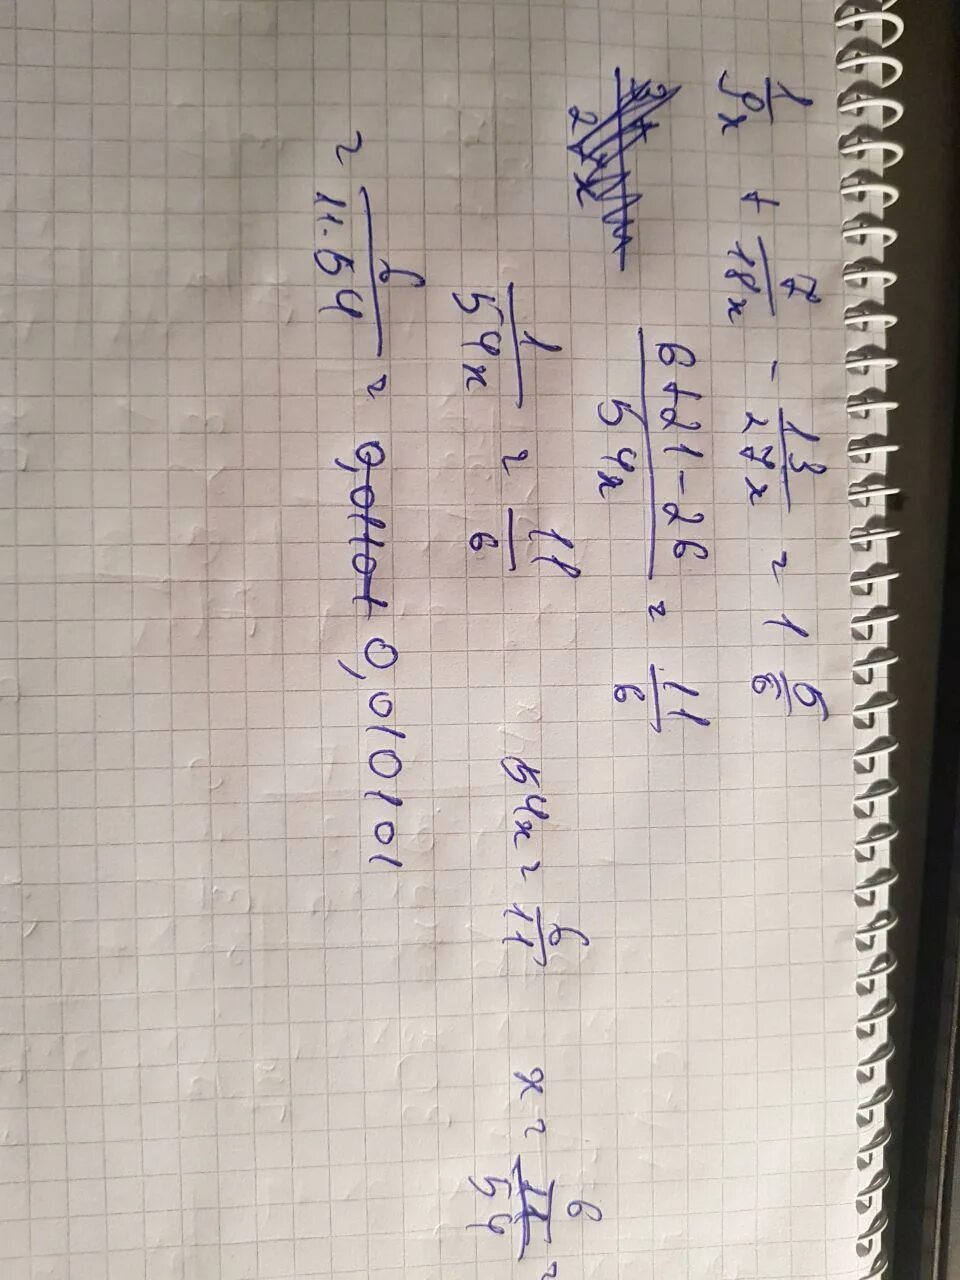 1/9x + 7/18x - 13/27x = 1 5/6
6+21-26/54x = 11/6
1/54x = 11/6 54x = 6/11 x = 6/11/54 =
= 6/11·54 = 0,01101 0,010101